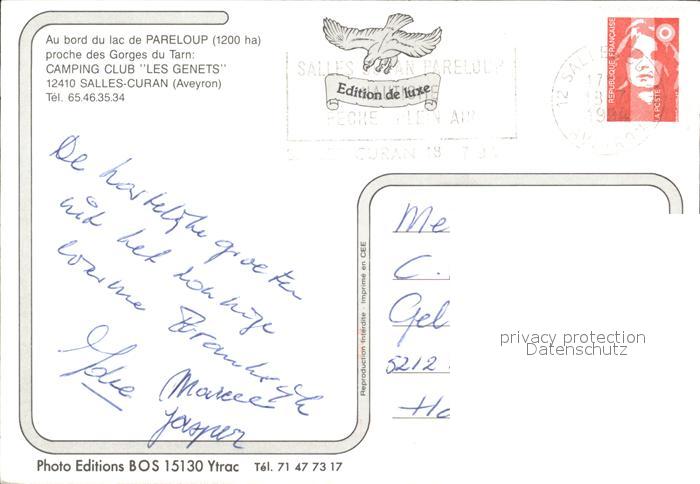 Au bord du lac de PARELOUP (1200 ha)
proche des Gorges du Tarn:
CAMPING CLUB "LES GENETS"
12410 SALLES-CURAN (Aveyron)
Tél. 65.46.35.34
SALLES CURAN PARELOUP
Edition de luxe
PECHE PLEIN AIR
CURAN 18 7
12 SALLES
17
REPUBLIQUE FRANÇAISE
LA POSTE
De hartelijke groeten
uit het zonnige
warme Frankrijk
Marcel
Jasper
Reproduction Interdite Imprimé en CEE
Me
C.
Gel
5212
Ho
privacy protection
Datenschutz
Photo Editions BOS 15130 Ytrac Tél. 71 47 73 17